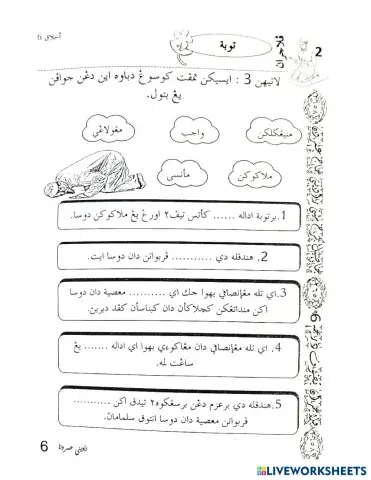 أخلاق 6
ڤلاجرن
2
توبة
لاتيهن 3 : ايسيكن تمڤت كوسوڠ دباوه اين دڠن جواڤن
يڠ بتول.
مڠولاڠي
واجب
منيڠݢلكن
مأنسي
ملاكوكن
1. برتوبة اداله ...... كأتس تيڤ٢ اورڠ يڠ ملاكوكن دوسا.
2. هندقله دي ........... ڤربواتن دان دوسا ايت.
3. اي تله مڠانصافي بهوا .......... معصية دان دوسا
اكن منداتڠكن كجلاكأن دان كبيناسأن كڤد ديرين.
4. اي تله مڠانصافي دان مڠاكوءي بهوا اي اداله ....... يڠ
ساڠت لمه.
5. هندقله دي برعزم دڠن برسڠݢوه٢ تيدق اكن ..........
ڤربواتن معصية دان دوسا انتوق سلمامان.
6
LIVEWORKSHEETS